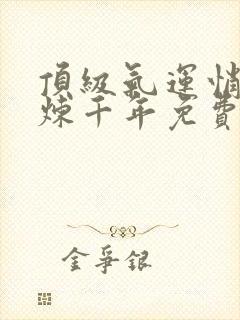 頂級氣運悄
煉千年免費
金爭銀